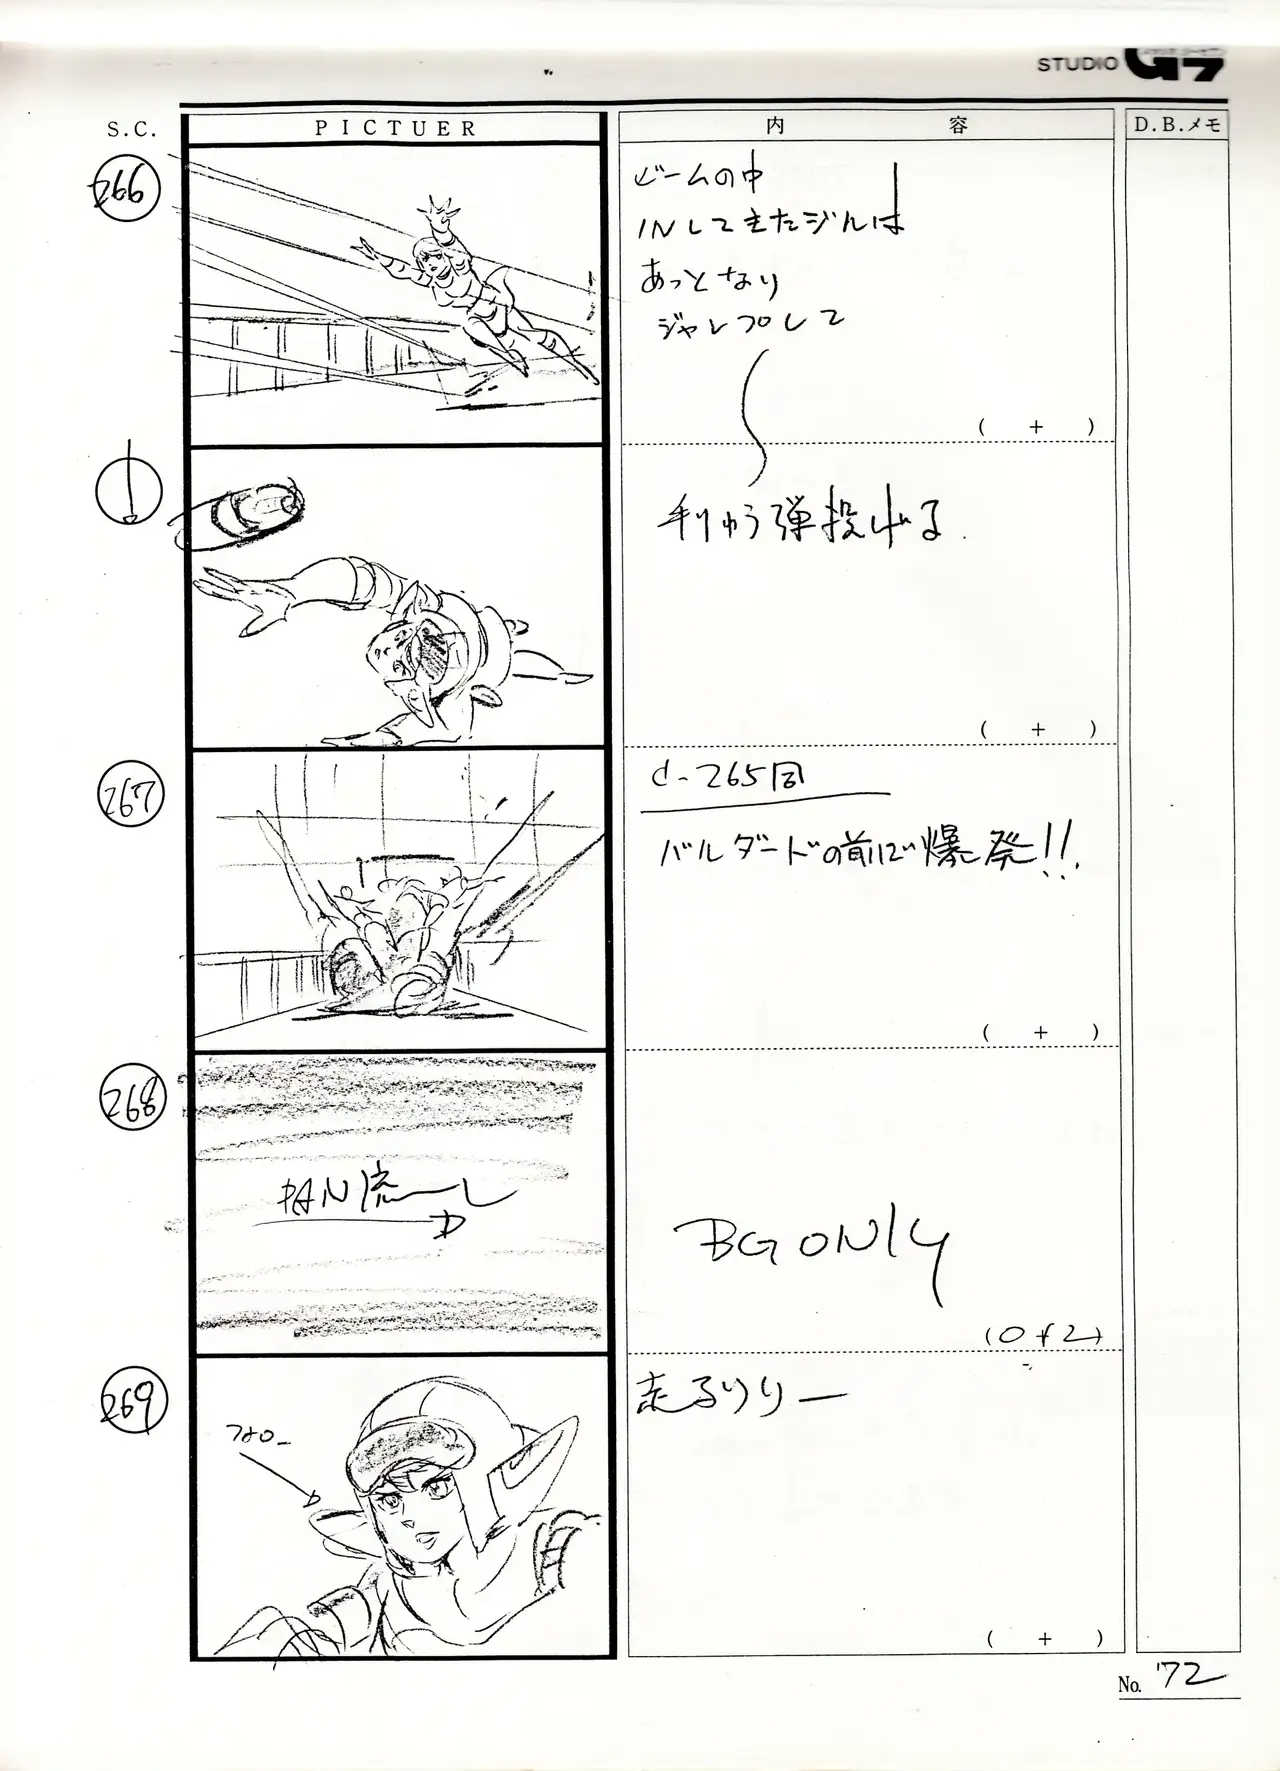 STUDIO G7
S.C.
PICTUER
内 容
D.B.メモ
266
ビームの中
INしてきたジルは
あっとなり
ジャンプして
( + )
手りゅう弾投げる
( + )
267
C-265同
バルダードの前にて爆発!!
( + )
268
PAN流し
BG ONLY
(0+2)
269
フォロー
走るリリー
( + )
No. 72